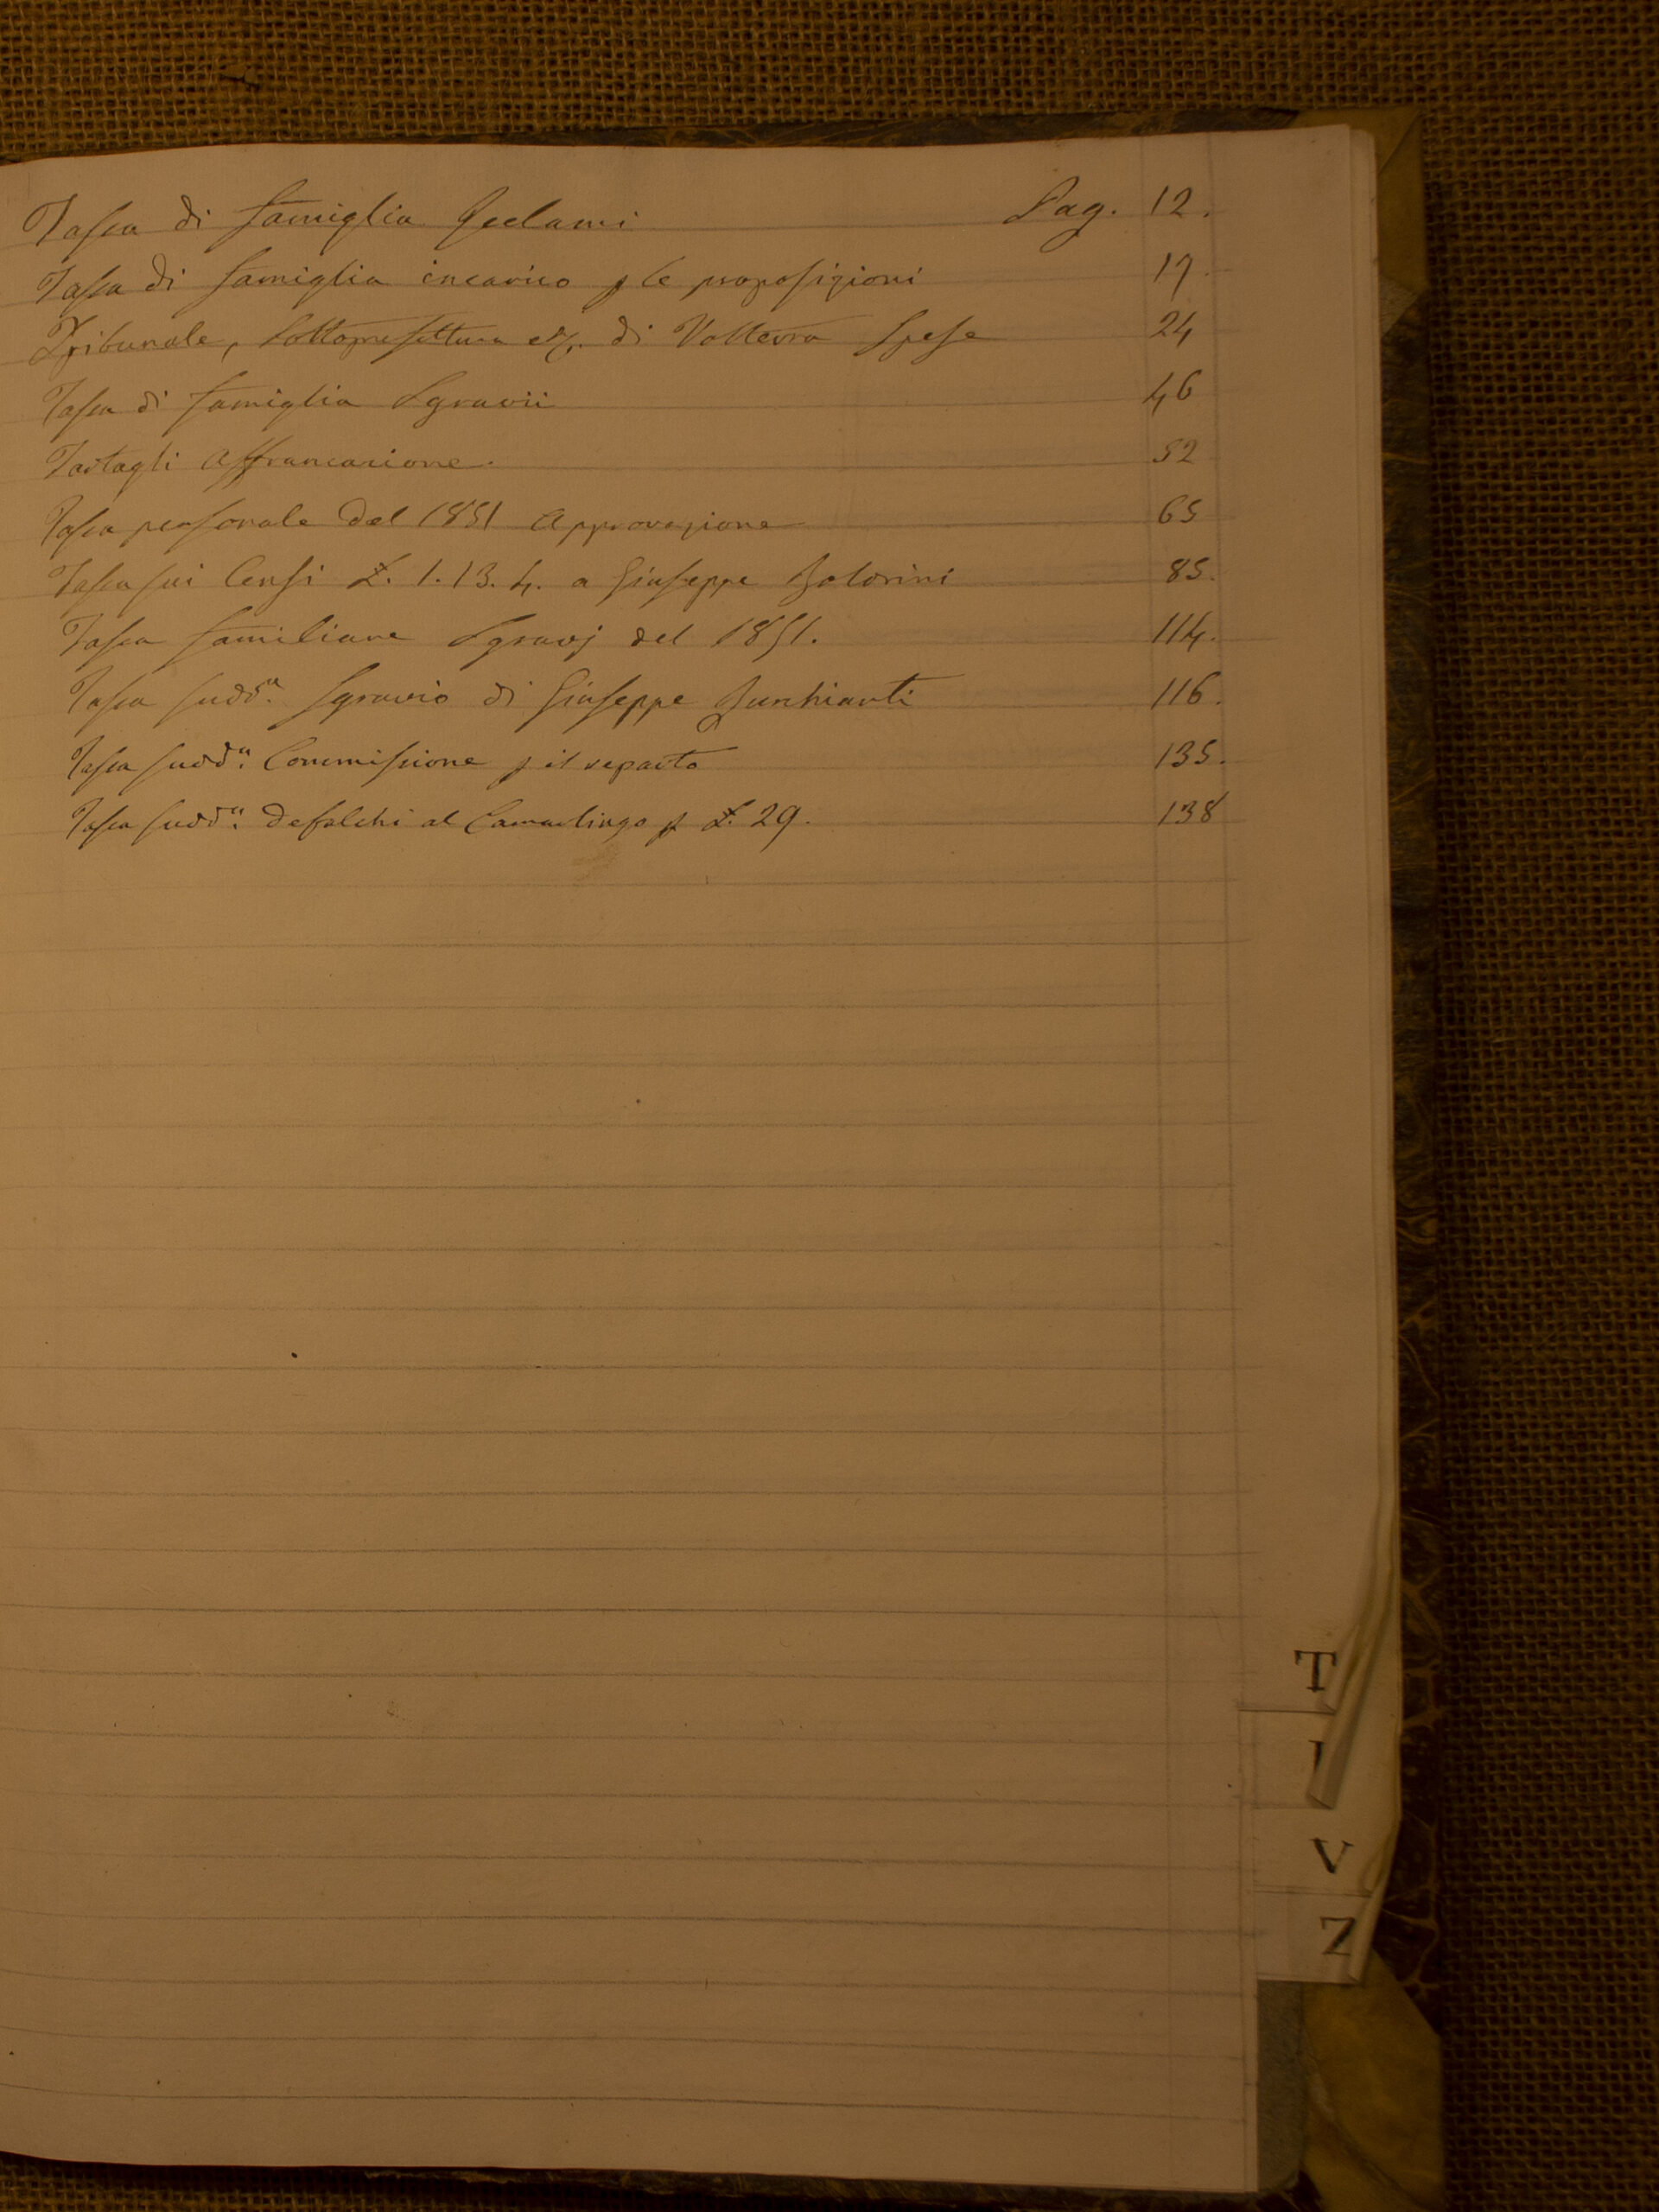 Tassa di famiglia Reclami Pag. 12.
Tassa di famiglia incarico p le proposizioni 17.
Tribunale, Sottoprefettura di Volterra Spese 24
Tassa di famiglia Sgravii 46
Tartagli Affrancazione. 52
Tassa personale del 1851 Approvazione 65
Tassa sui Censi £. 1. 13. 4. a Giuseppe Baldrini 85.
Tassa familiare Sgravj del 1851. 114.
Tassa sudd.a Sgravio di Giuseppe Burchianti 116.
Tassa sudd.a Commissione p il reparto 135.
Tassa sudd.a Defalchi al Camarlingo p £. 29. 138
T
V
Z